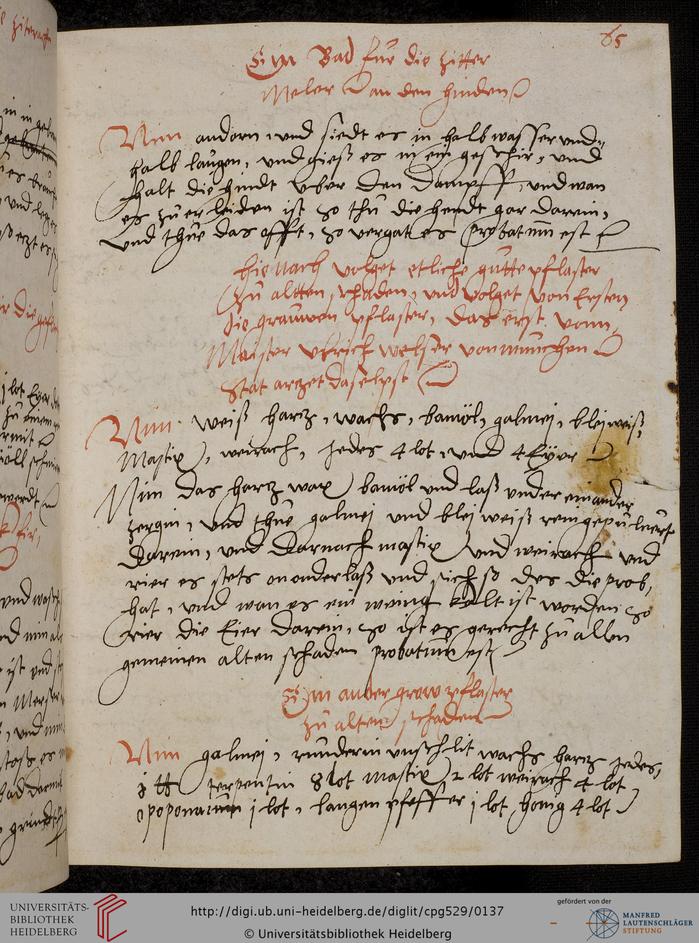 65
Ein Bad für die zitter
Meler an den henden
Nim andorn, und siedt es in halb wasser und
halb laugen, und gieß es in ein geschir, und
halt die hendt uber den dampff, und wan
es zu erleiden ist so thu die hendt gar darein,
und thue das offt, so vergat es probatum est
Hienach volget etliche gutte pflaster
zu altten schaden, und volget von Ersten
die grauwen pflaster, das erst vonn
Maister Ulrich welser von München
Stat artzet daselpst
Nim weiß hartz, wachs, bamöl, galmei, bleiweiß,
Mastix, weirach, jedes 4 lot, und 4 Eyer
Nim das hartz wax bamöl und laß under einander
zergin, und thue galmei und bleiweiß rein gepulvert
darein, und darnach mastix und weirach und
rier es stets on onderlaß und sich so das die prob,
hat, und wan es ein wenig kalt ist worden so
rier die Eier darein, so ist es gerecht zu allen
gemeinen alten schaden probatum est
Ein ander grow pflaster
zu alten schaden
Nim galmei, rinderin unschlit wachs hartz jedes,
terpentin 8 lot mastix 2 lot weirach 4 lot
opoponacum j lot, langen pfeffer j lot honig 4 lot
UNIVERSITÄTS-
BIBLIOTHEK
HEIDELBERG
http://digi.ub.uni-heidelberg.de/diglit/cpg529/0137
© Universitätsbibliothek Heidelberg
gefördert von der
MANFRED
LAUTENSCHLÄGER
STIFTUNG